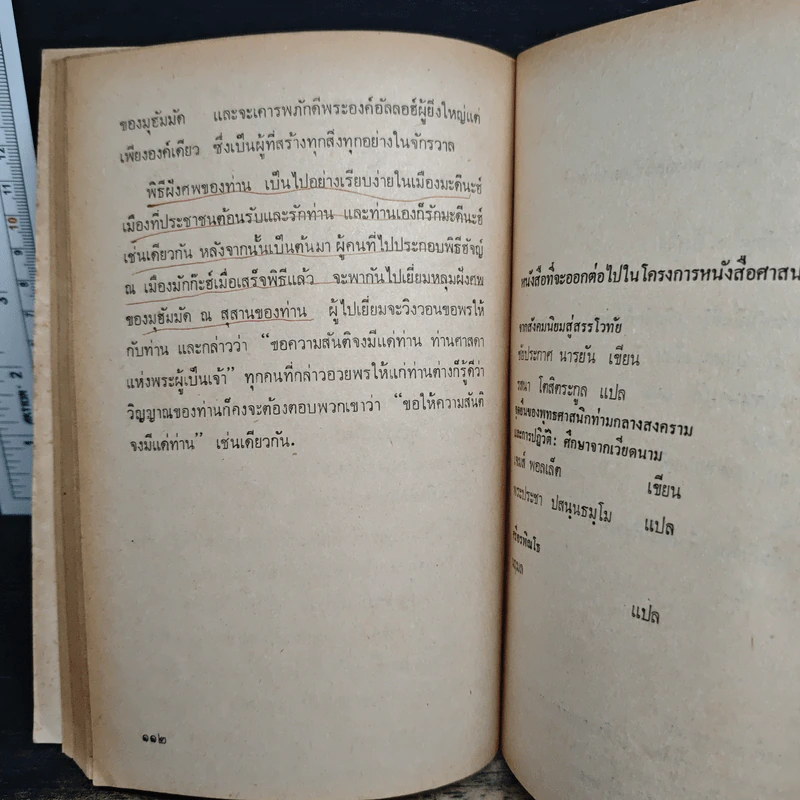 ของมุฮัมมัด และจะเคารพภักดีพระองค์อัลลอฮ์ผู้ยิ่งใหญ่แต่
เพียงองค์เดียว ซึ่งเป็นผู้ที่สร้างทุกสิ่งทุกอย่างในจักรวาล
พิธีฝังศพของท่าน เป็นไปอย่างเรียบง่ายในเมืองมะดีนะฮ์
เมืองที่ประชาชนต้อนรับและรักท่าน และท่านเองก็รักมะดีนะฮ์
เช่นเดียวกัน หลังจากนั้นเป็นต้นมา ผู้คนที่ไปประกอบพิธีฮัจญ์
ณ เมืองมักก๊ะฮ์เมื่อเสร็จพิธีแล้ว จะพากันไปเยี่ยมหลุมฝังศพ
ของมุฮัมมัด ณ สุสานของท่าน ผู้ไปเยี่ยมจะวิงวอนขอพรให้
กับท่าน และกล่าวว่า “ขอความสันติจงมีแด่ท่าน ท่านศาสดา
แห่งพระผู้เป็นเจ้า” ทุกคนที่กล่าวอวยพรให้แก่ท่านต่างก็รู้ดีว่า
วิญญาณของท่านก็คงจะต้องตอบพวกเขาว่า “ขอให้ความสันติ
จงมีแด่ท่าน” เช่นเดียวกัน.
๑๑๒
หนังสือที่จะออกต่อไปในโครงการหนังสือศาสน
จากสังคมนิยมสู่สรรโวทัย
ชัยประกาศ นารายัน เขียน
รสนา โตสิตระกูล แปล
จุดยืนของพุทธศาสนิกท่ามกลางสงคราม
และการปฏิวัติ: ศึกษาจากเวียดนาม
เจมส์ ฟอลเล็ต
เขียน
พระประชา ปสนฺนธมฺโม แปล
แปล